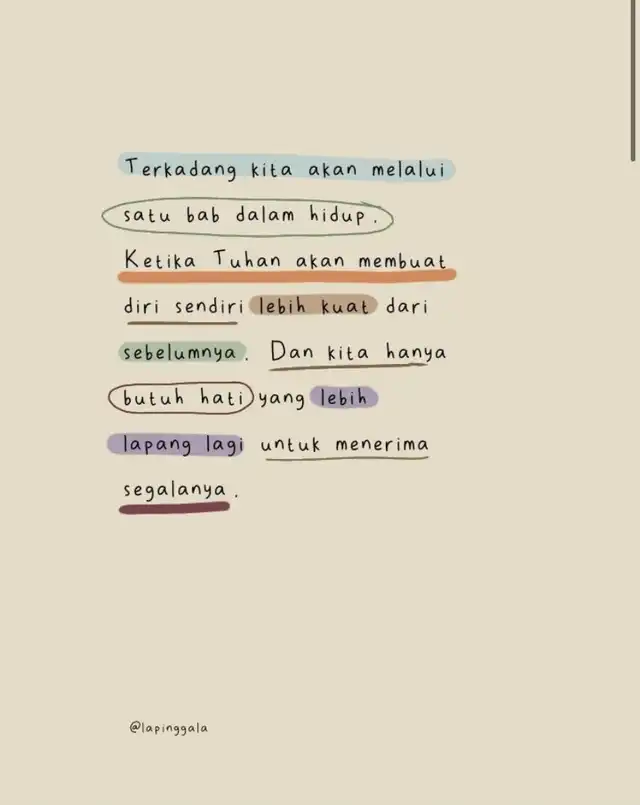 Terkadang kita akan melalui
satu bab dalam hidup.
Ketika Tuhan akan membuat
diri sendiri lebih kuat dari
sebelumnya. Dan kita hanya
butuh hati yang lebih
lapang lagi untuk menerima
segalanya.
@lapinggala